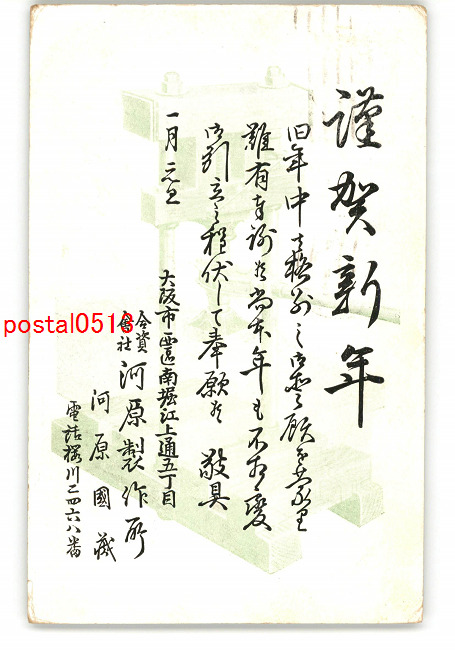 謹賀新年
旧年中は格別之御愛顧を蒙り
難有奉謝候尚本年も不相変
御引立之程伏して奉願候 敬具
一月元旦
大阪市西區南堀江上通五丁目
合資會社 河原製作所
河原國藏
電話櫻川二四六八番
postal0518